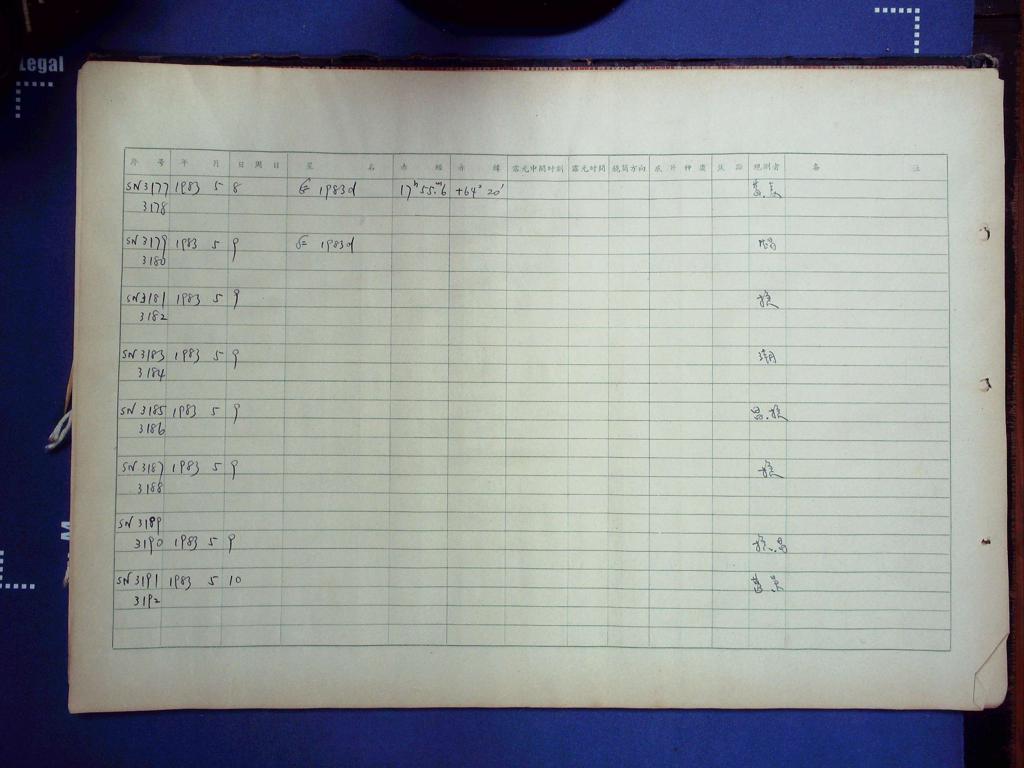 Legal
序 号 年 月 日 周 日 星 名 赤 经 赤 纬 露光中间时刻 露光时间 镜筒方向 底 片 种 类 观测者 备 注
SN3177 1983 5 8 1983d 17h 55m.6 +64° 20'
3178
SN3179 1983 5 9 1983d
3180
SN3181 1983 5 9
3182
SN3183 1983 5 9
3184
SN3185 1983 5 9
3186
SN3187 1983 5 9
3188
SN3189
3190 1983 5 9
SN3191 1983 5 10
3192